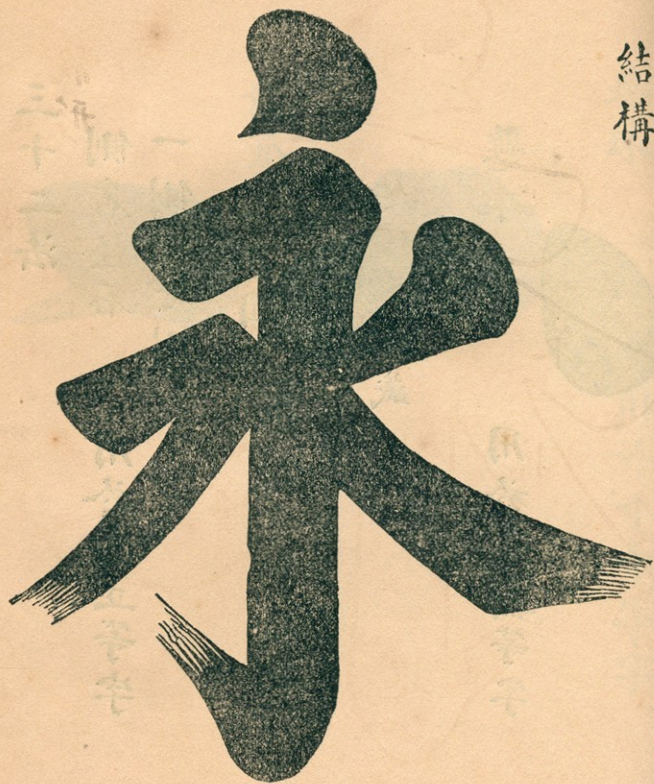 結構
永